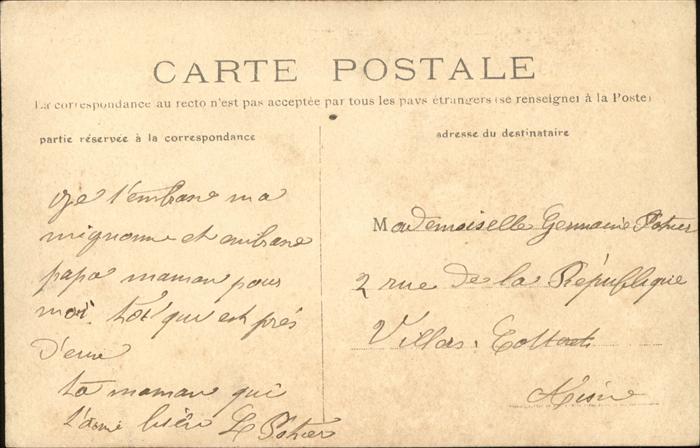 CARTE POSTALE
La correspondance au recto n'est pas acceptée par tous les pays étrangers (se renseigner à la Poste)
partie réservée à la correspondance
adresse du destinataire
Je t'embrasse ma
mignonne et embrasse
papa maman pour
moi. toi qui est prés
d'eux
ta maman qui
t'aime bien L Pohier
Mademoiselle Germaine Pohier
2 rue de la République
Villers. Cotterets
Aisne